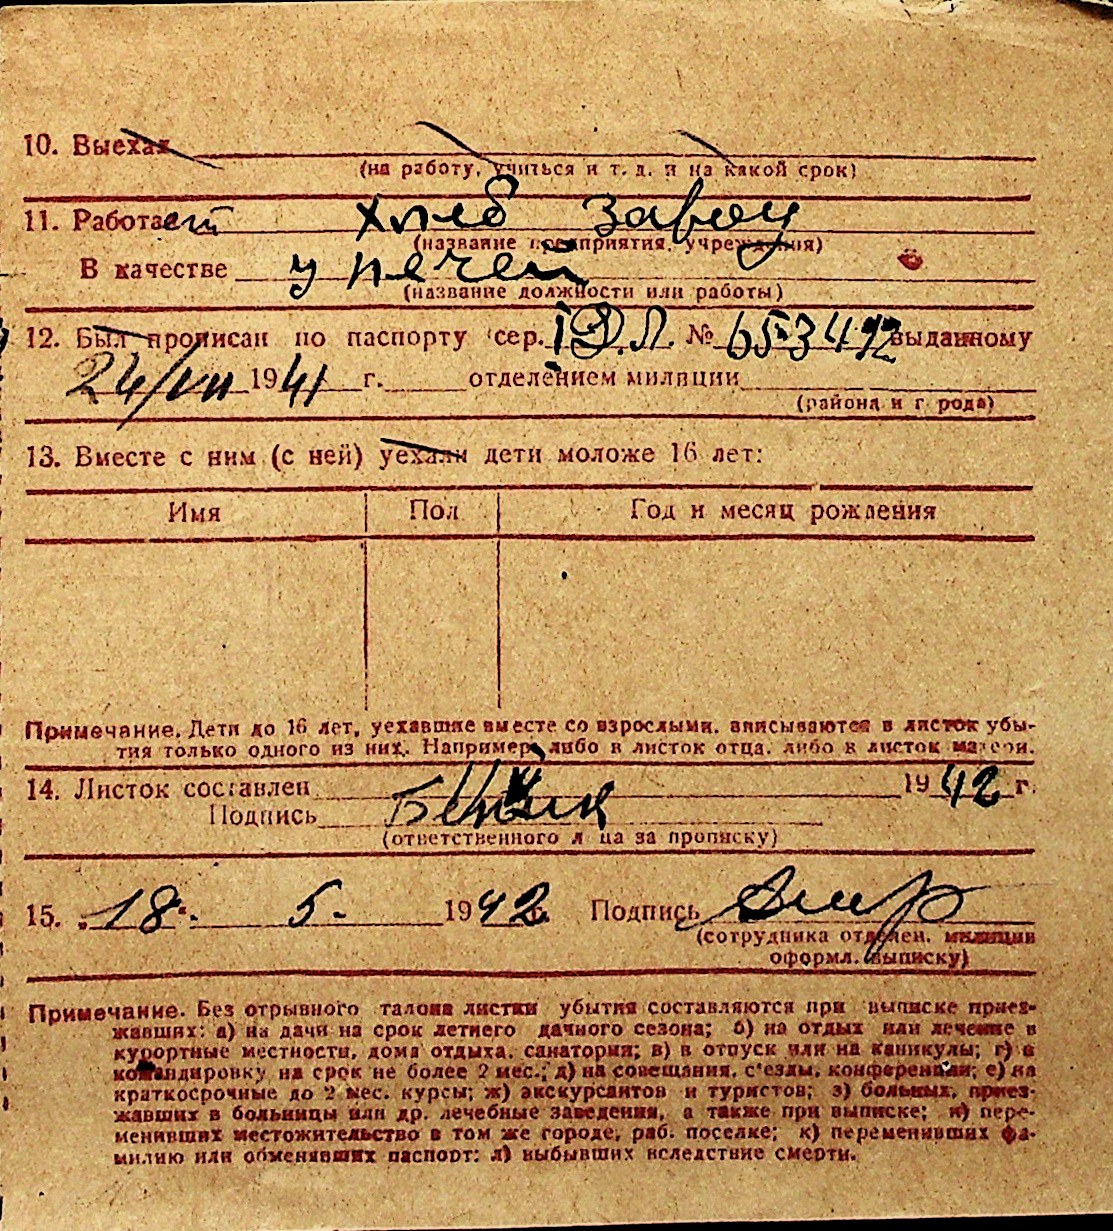 10. Выехал
(на работу, учиться и т. д. и на какой срок)
11. Работает хлеб завод
(название предприятия, учреждения)
В качестве у печей
(название должности или работы)
12. Был прописан по паспорту сер. № 653492 выданному
24/VII 1941 г. отделением милиции
(района и города)
13. Вместе с ним (с ней) уехали дети моложе 16 лет:
Имя Пол Год и месяц рождения
Примечание. Дети до 16 лет, уехавшие вместе со взрослыми, вписываются в листок убы-
тия только одного из них. Например, либо в листок отца, либо в листок матери.
14. Листок составлен 1942 г.
Подпись
(ответственного лица за прописку)
15. 18. 5. 1942 г. Подпись
(сотрудника отделен. милиции
оформл. выписку)
Примечание. Без отрывного талона листки убытия составляются при выписке приез-
жавших: а) на дачи на срок летнего дачного сезона; б) на отдых или лечение в
курортные местности, дома отдыха, санатории; в) в отпуск или на каникулы; г) в
командировку на срок не более 2 мес.; д) на совещания, с'езды, конференции; е) на
краткосрочные до 2 мес. курсы; ж) экскурсантов и туристов; з) больных, приез-
жавших в больницы или др. лечебные заведения, а также при выписке; и) пере-
менивших местожительство в том же городе, раб. поселке; к) переменивших фа-
милию или обменявших паспорт; л) выбывших вследствие смерти.